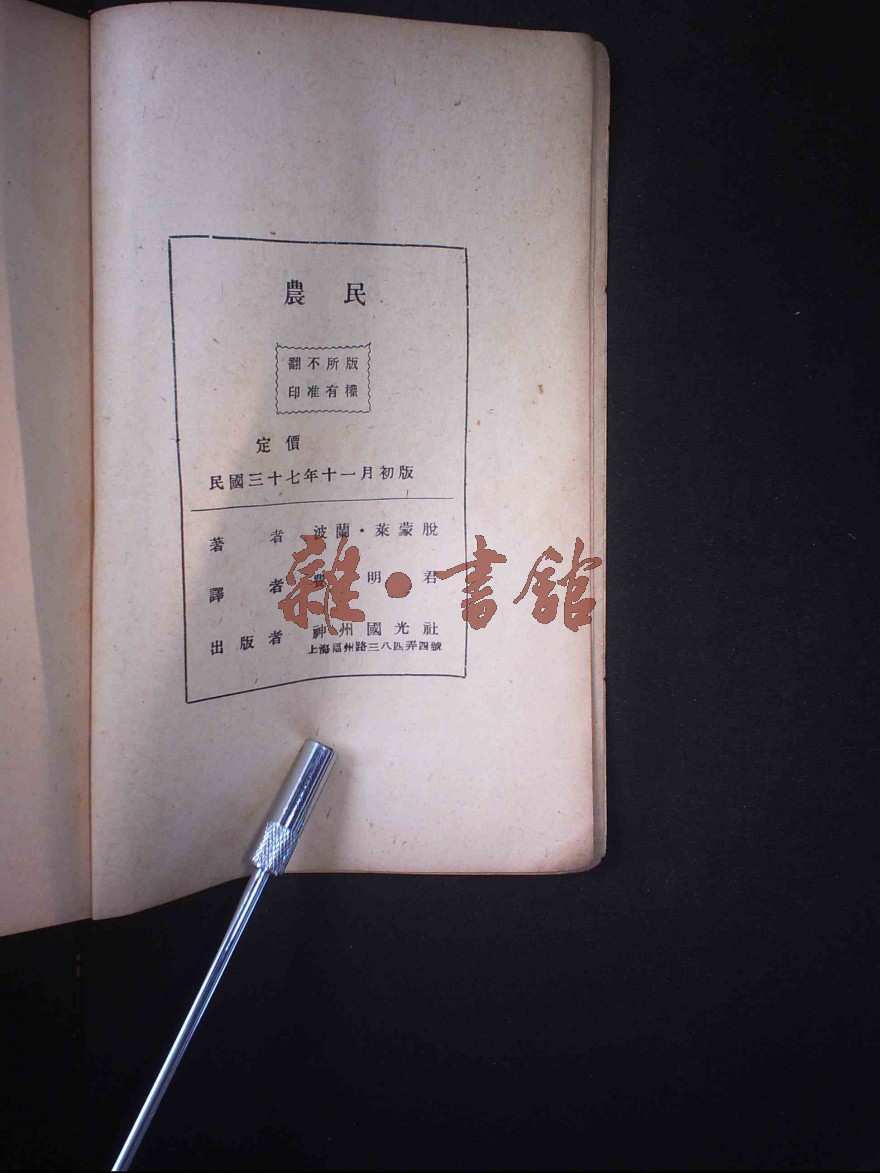 農民
版權
所有
不准
翻印
定價
民國三十七年十一月初版
著者 波蘭·萊蒙脫
譯者 費明君
出版者 神州國光社
上海福州路三八四弄四號
雜·書館